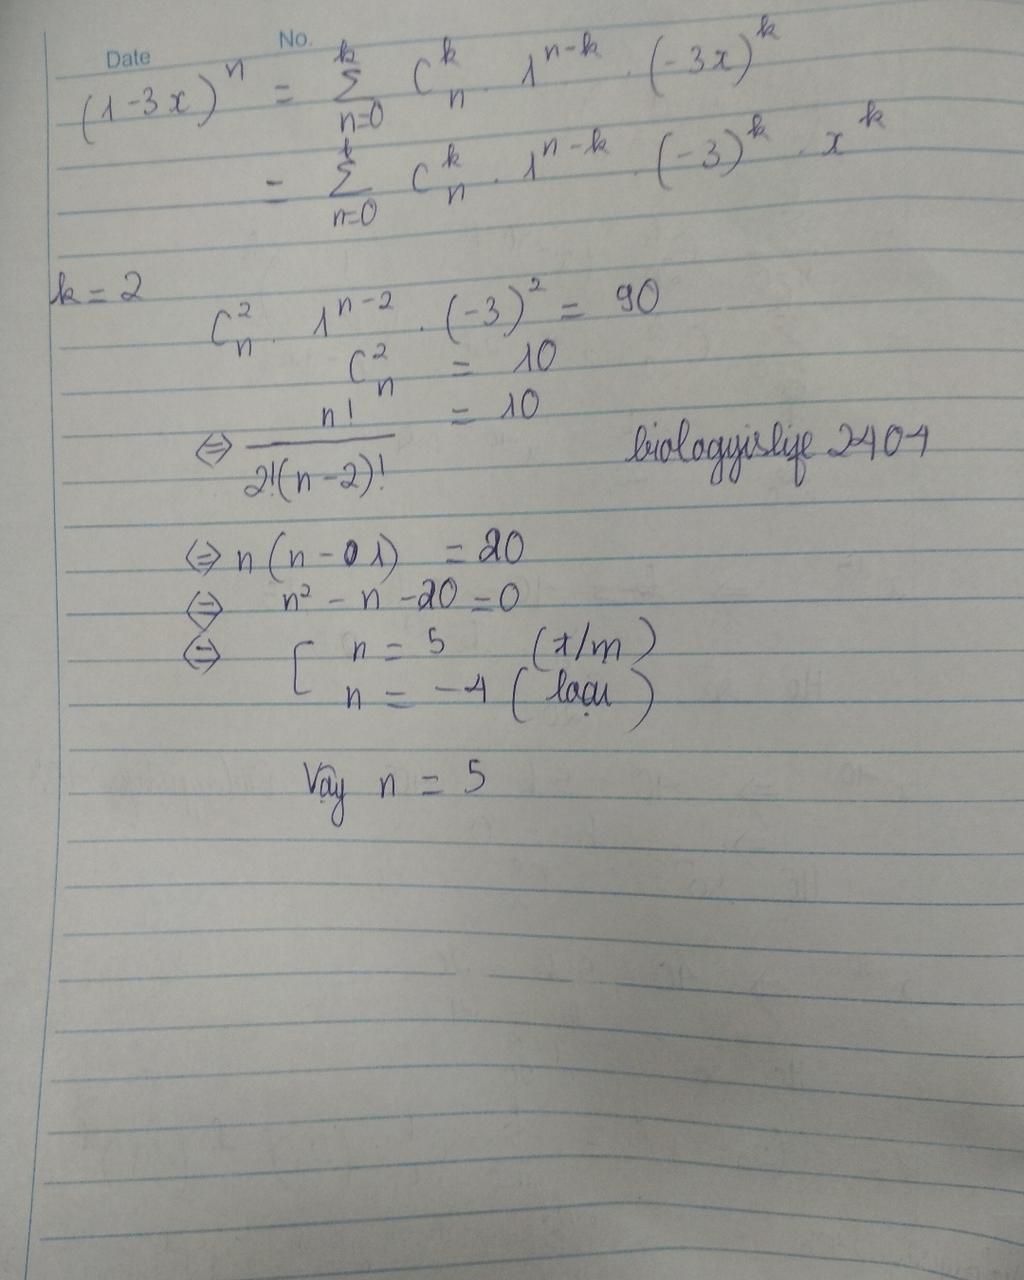 Date No.
(1-3x)^n = \sum_{n=0}^{k} C_n^k . 1^{n-k} . (-3x)^k
= \sum_{n=0}^{k} C_n^k . 1^{n-k} . (-3)^k . x^k
k = 2
C_n^2 . 1^{n-2} . (-3)^2 = 90
C_n^2 = 10
⇔ n! / 2!(n-2)! = 10
biologyislife 2404
⇔ n(n-1) = 20
⇔ n² - n - 20 = 0
⇔ [ n = 5 (t/m)
n = -4 (loại)
Vậy n = 5